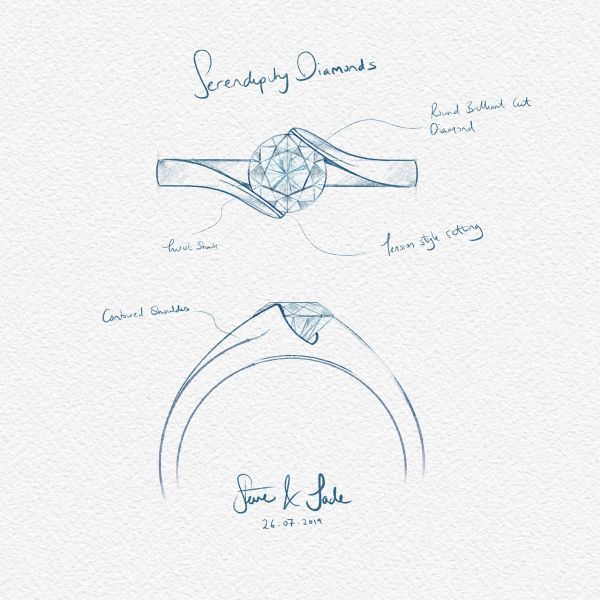 Serendipity Diamonds
Round Brilliant Cut
Diamond
Twist Shank
Tension style setting
Contoured Shoulders
Steve & Jade
26.07.2019